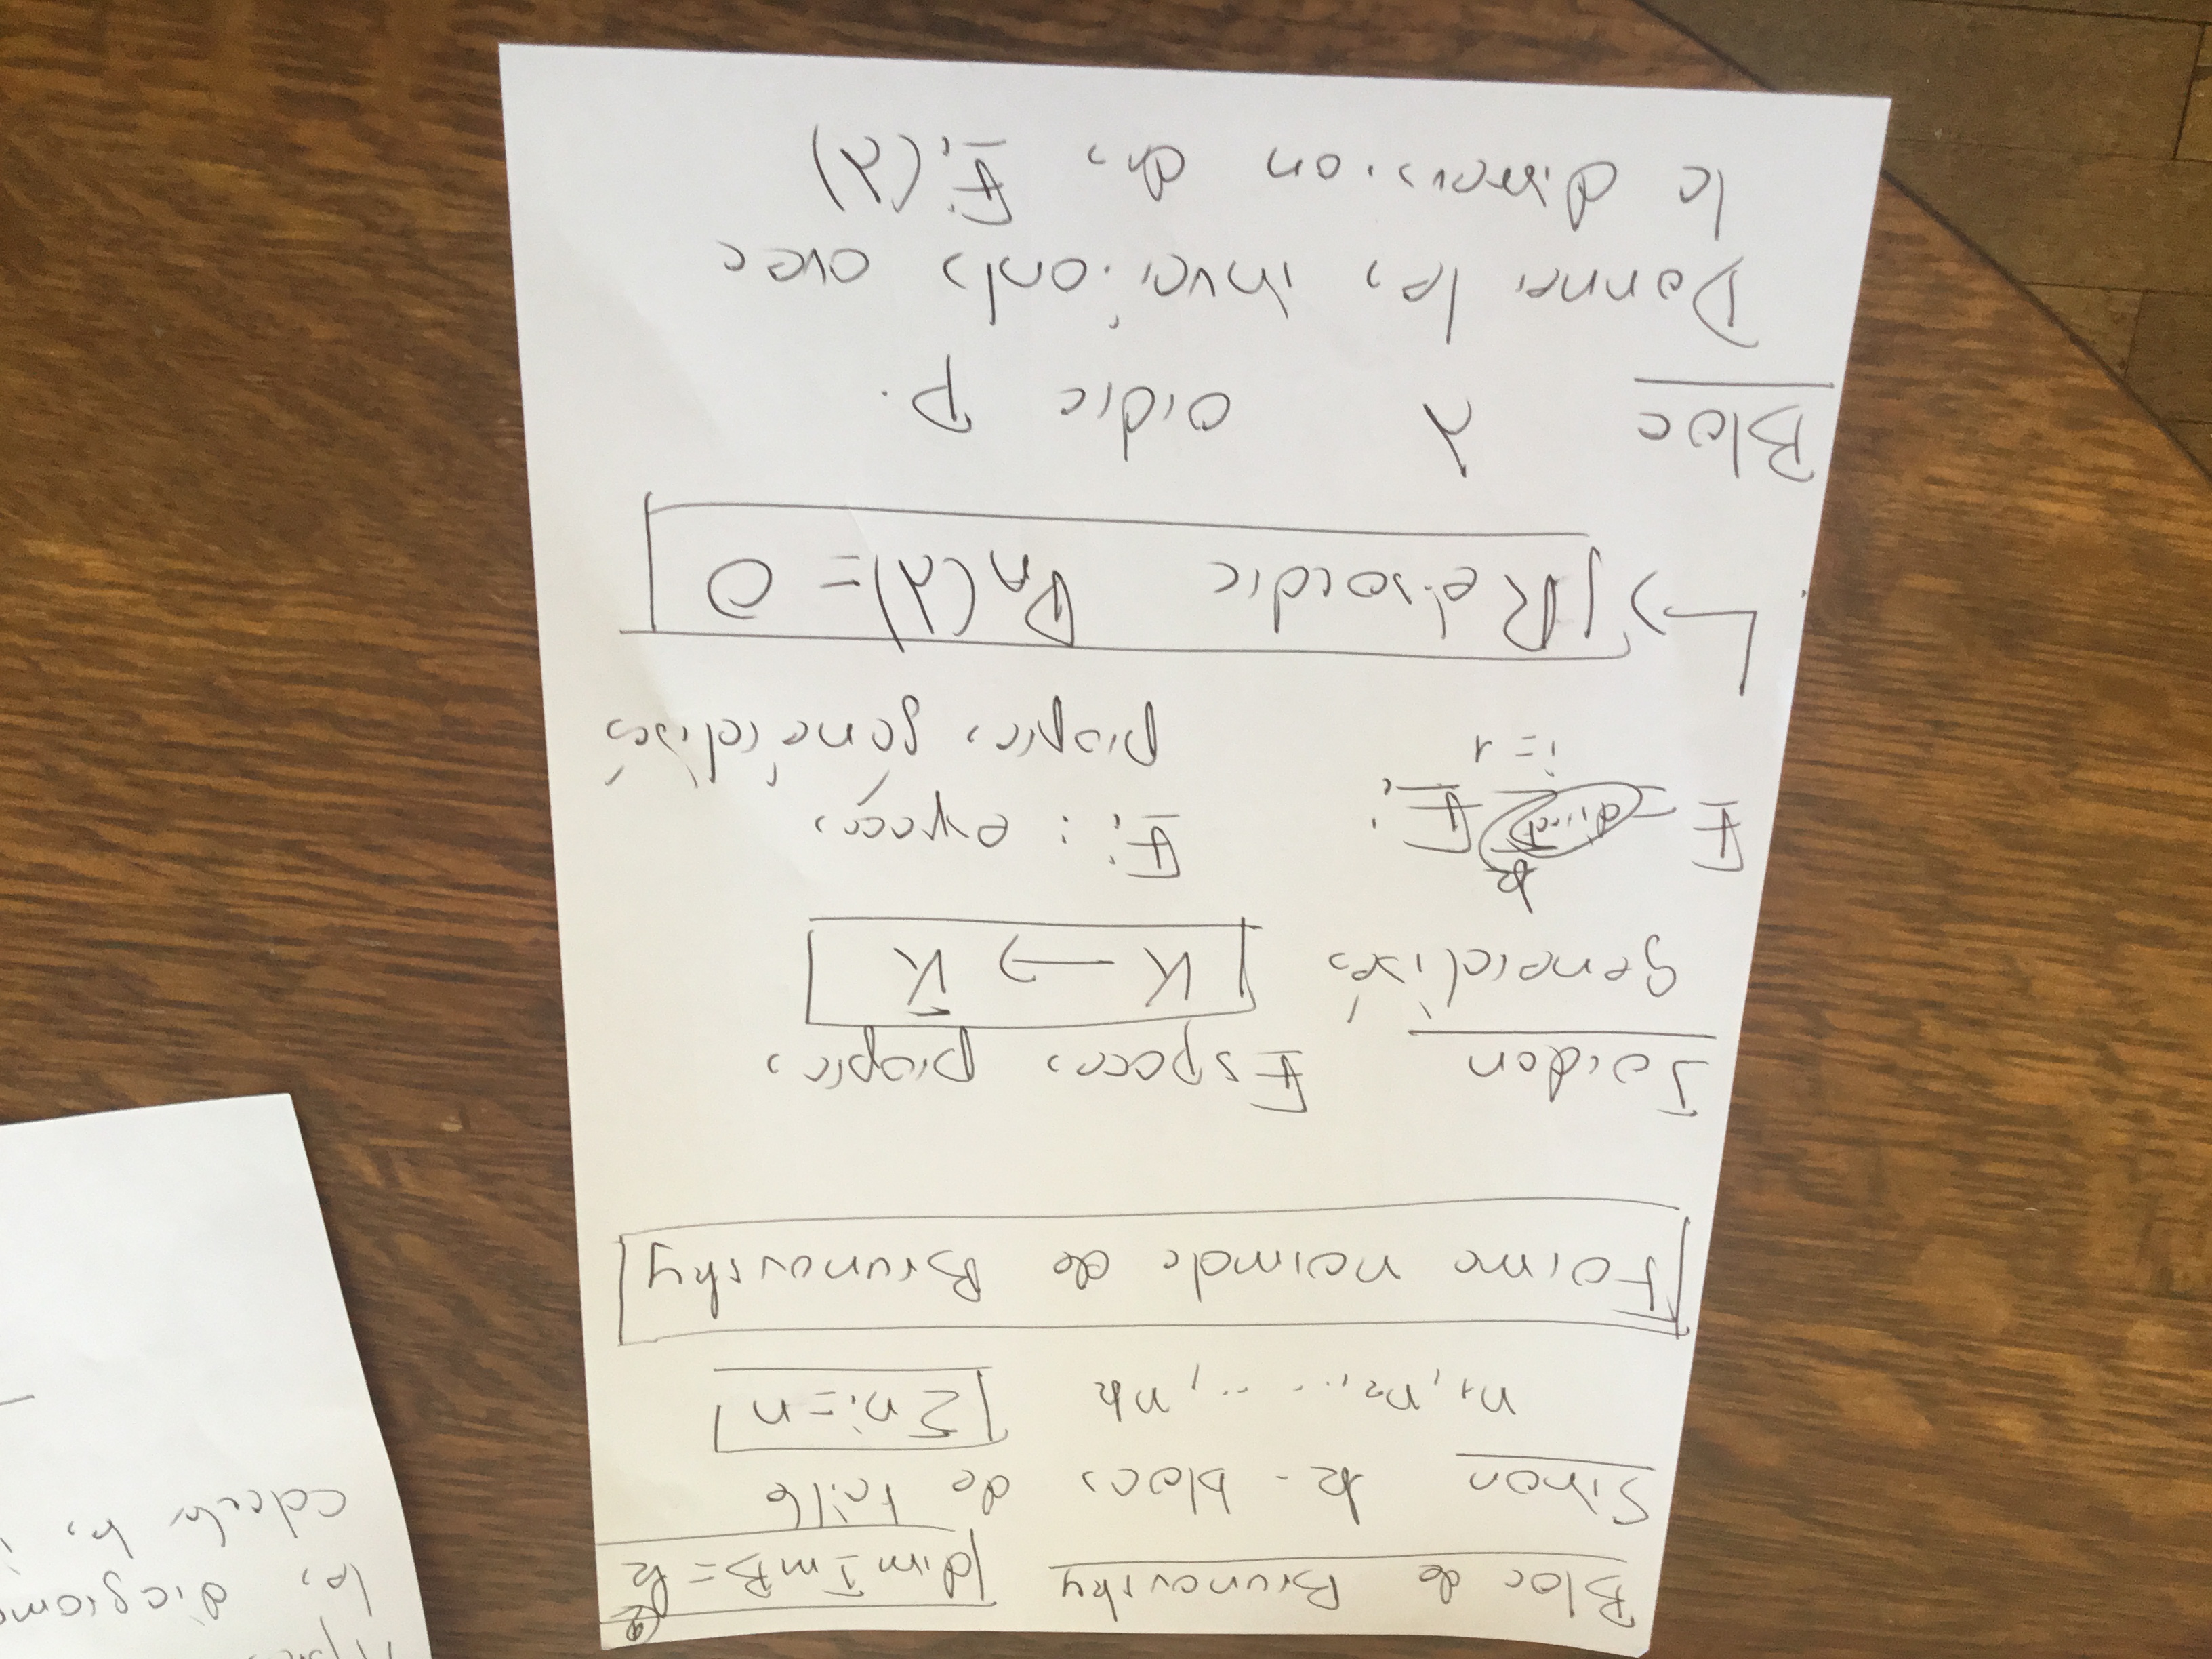 Bloc de Brunovsky dim Im B = k
②
Sinon k-blocs de taille
n1, n2, ..., nk Σ ni = n
Forme normale de Brunovsky
Jordan Espaces propres
generalisés K → K̄
E = direct Σ Ei Ei : espaces
k
i = 1
propres généralisés
↳ Résoudre PA(λ) = 0
Bloc λ ordre p.
Donner les invariants avec
la dimension des Ei(λ)
les diagram
calculer les i